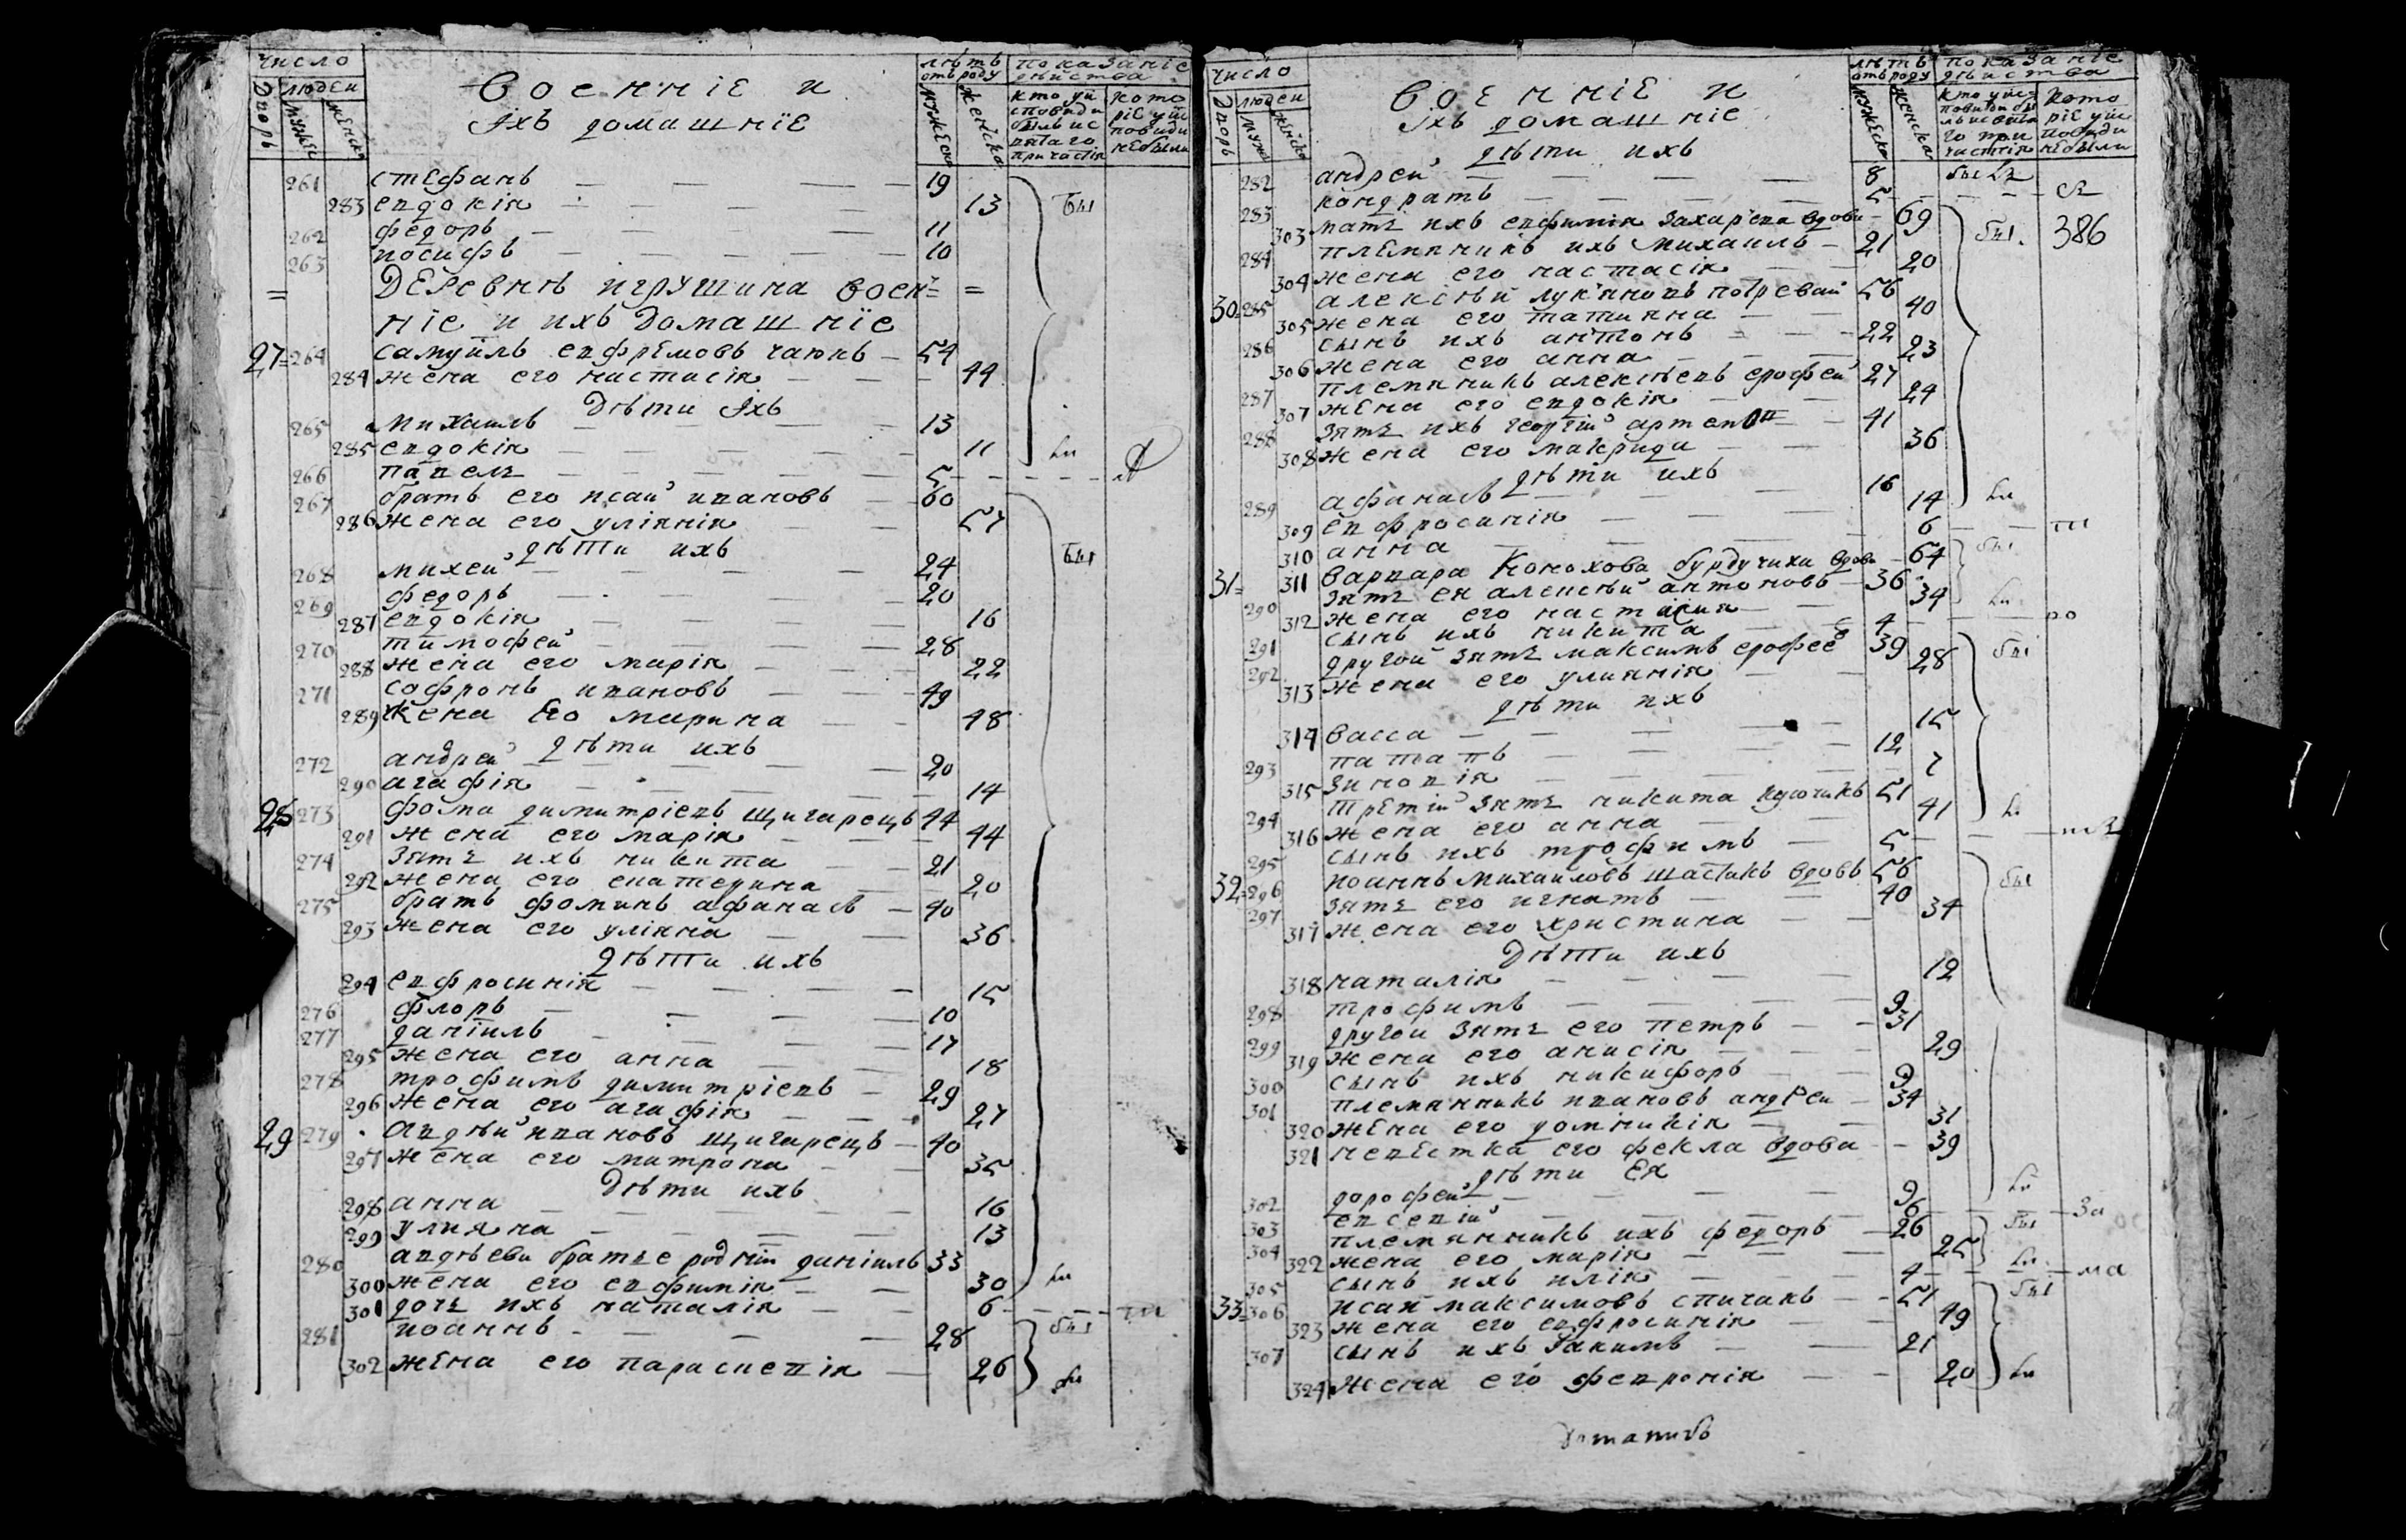 число
людеи
дворъ
мужес
женско
Военніе и
Іхъ домашніе
лѣтъ
отъ роду
мужеска
женска
показаніе
дѣйства
кто у и
сповиди
былъ и с
вятаго
причастія
кото
ріе у ис
повиди
небыли
261 стефанъ 19
283 евдокія 13 бы
262 федоръ 11
263 иосифъ 10
= Деревнѣ игрушина воен =
ніе и ихъ домашніе
27 264 самуилъ евфремовъ чаюнъ 54
284 жена его настасія 44
Дѣти Іхъ
265 Михаилъ 13
285 евдокія 11 ли
266 павелъ 5
267 братъ его исаи ивановъ 60
286 жена его уліянія 57
дѣти ихъ бы
268 михеи 24
269 федоръ 20
287 евдокія 16
270 тимофеи 28
288 жена его марія 22
271 софронъ ивановъ 49
289 жена Его марина 48
дѣти ихъ
272 андреи 20
290 агафія 14
28 273 фома димитріевъ щигарецъ 44
291 жена его марія 44
274 зять ихъ никита 21
292 жена его екатерина 20
275 братъ фоминъ афанасъ 40
293 жена его уліяна 36
дѣти ихъ
294 евфросинія 15
276 флоръ 10
277 даніилъ 17
295 жена его анна 18
278 трофимъ димитріевъ 29
296 жена его агафія 27
29 279 Авдѣи ивановъ щигарецъ 40
297 жена его матрона 35
Дѣти ихъ
298 анна 16
299 улияна 13
280 авдѣеви братье родніи даніилъ 33
300 жена его евфимія 30 ли
301 дочь ихъ наталія 6
281 иоаннъ 28 бы
302 жена его параскевія 26 ли
число
людеи
дворъ
мужес
женско
Военніе и
Іхъ домашніе
дѣти ихъ
лѣтъ
отъ роду
мужеска
женска
показаніе
дѣиства
кото
ріе у ис
повиди
небыли
282 андреи 8
283 кондратъ 5
303 мать ихъ евфимія захарьева вдова 69 бы 386
284 племяникъ ихъ михаилъ 21
304 жена его настасія 20
30 285 алексѣи лукяновъ потревай 56
305 жена его татияна 40
286 сынъ ихъ антонъ 22
306 жена его анна 23
287 племяникъ алексѣевъ ерофеи 27
307 жена его евдокія 24
288 зять ихъ георгіи 41
308 жена его макрида 36
дѣти ихъ
289 афанасъ 16
309 евфросинія 14 ли
310 анна 6
31 311 варвара Конохова бурдучиха вдова 64 бы
290 зять ея алексѣи антоновъ 36
312 жена его настасия 34 ли
291 сынъ ихъ никита 4
292 другои зять максимъ ерофее 39 бы
313 жена его улиянія 28
дѣти ихъ
314 васса 15
293 патапъ 12
315 зиновія 7
294 третіи зять никита 51
316 жена его анна 41 ли
295 сынъ ихъ трофимъ 5
32 296 иоаннъ михаиловъ шастакъ вдовъ 56 бы
297 зять его игнатъ 40
317 жена его христина 34
Дѣти ихъ
318 наталія 12
298 трофимъ 9
299 другои зять его петръ 31
319 жена его анисія 29
300 сынъ ихъ никифоръ 9
301 племянникъ ивановъ андреи 34
320 жена его домникія 31
321 невестка его фекла вдова 39
дѣти Ея
302 дорофеи 9 ли
303 евсевіи 6
304 племянникъ ихъ федоръ 26 бы
322 жена его марія 25 ли
305 сынъ ихъ илія 4
33 306 исаи максимовъ спичакъ 51 бы
323 жена его евфросинія 49
307 сынъ ихъ Іакимъ 21
324 жена его февронія 20 ли